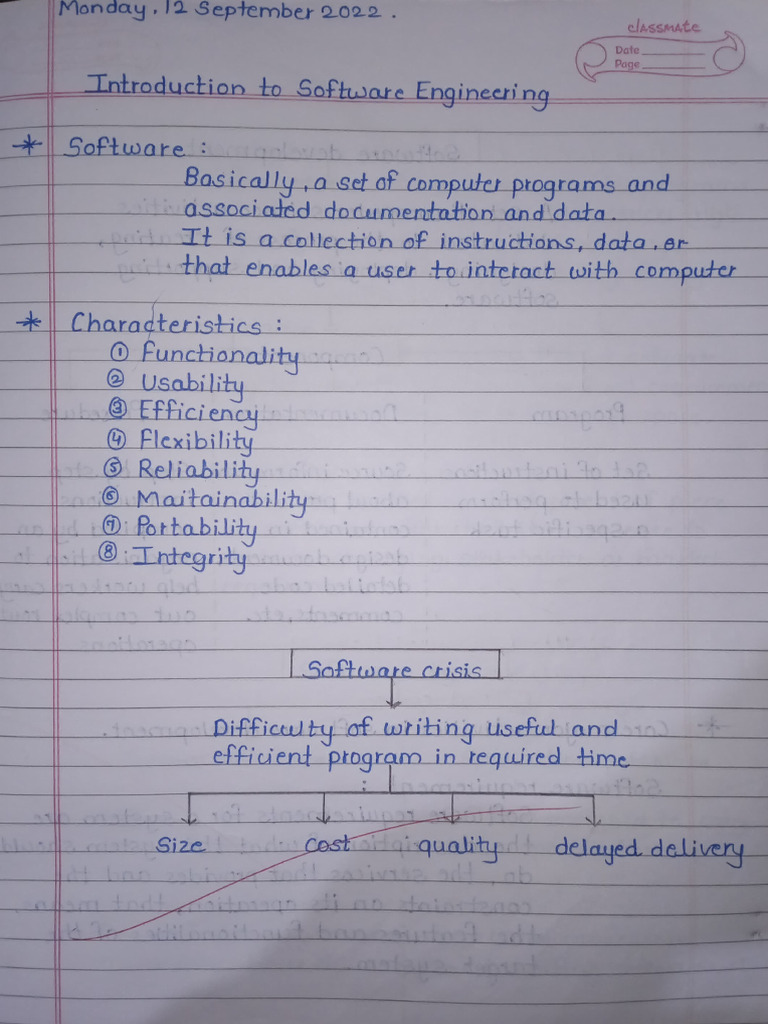 Monday, 12 September 2022.
classmate
Date
Page
Introduction to Software Engineering
* Software :
Basically, a set of computer programs and
associated documentation and data.
It is a collection of instructions, data, or
that enables a user to interact with computer
* Characteristics :
① Functionality
② Usability
③ Efficiency
④ Flexibility
⑤ Reliability
⑥ Maitainability
⑦ Portability
⑧ Integrity
Software crisis
Difficulty of writing useful and
efficient program in required time
:
Size cost quality delayed delivery